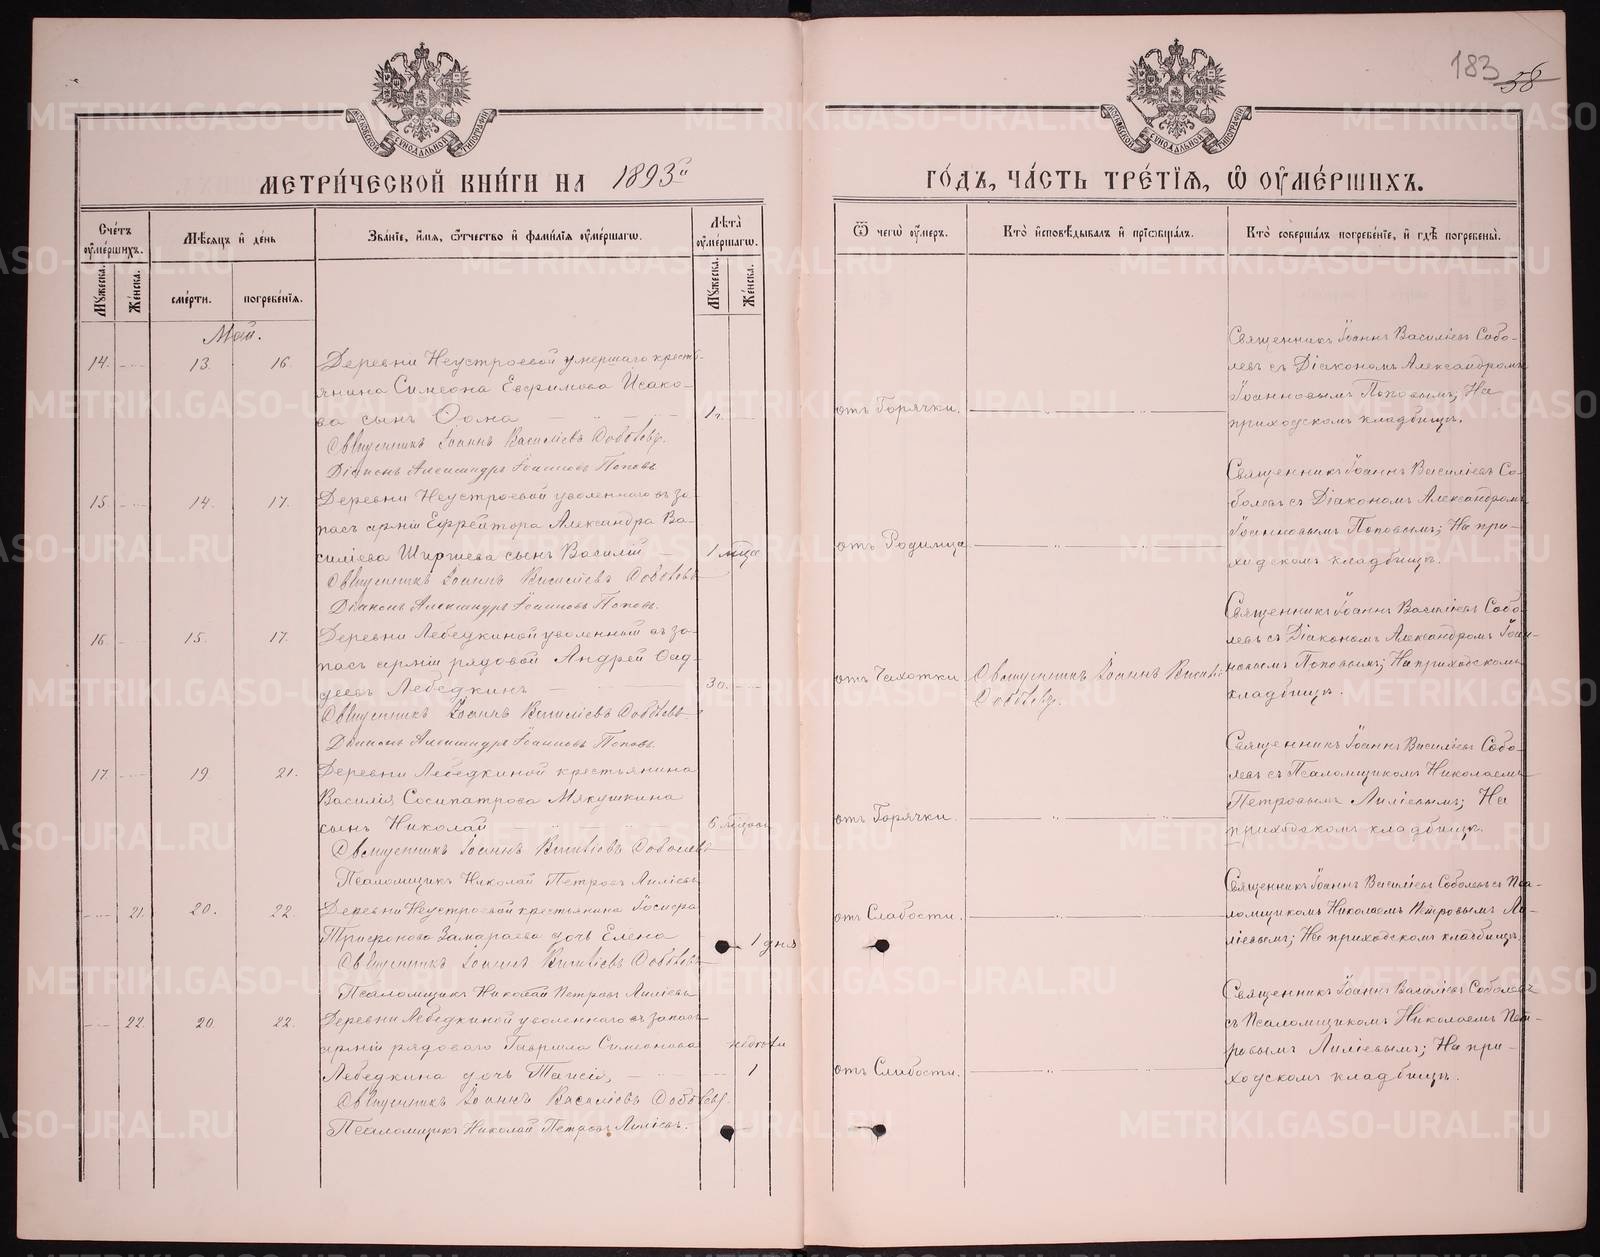 183 58
МЕТРИ́ЧЕСКОЙ КНИ́ГИ НА 1893й
ГО́ДЪ, ЧА́СТЬ ТРЕ́ТІѦ, Ѽ ОУМЕ́РШИХЪ.
Сче́тъ оуме́ршихъ.
Мꙋжеска.
Же́нска.
Мѣ́сѧцъ и҆ де́нь
сме́рти.
погребе́нїѧ.
Зва́нїе, и҆́мѧ, ѻ҆́тчество и҆ фами́лїѧ оуме́ршагѡ.
Лѣ́та оуме́ршагѡ.
Мꙋжеска.
Же́нска.
Ѿ чегѡ̀ оу́меръ.
Кто̀ и҆сповѣ́дывалъ и҆ прїѡбща́лъ.
Кто̀ соверша́лъ погребе́нїе, и҆ гдѣ̀ погребены̀.
Май.
14. 13. 16. Деревни Неустроевой умершаго кресть-
янина Симеона Евфимова Исако-
ва сынъ Ѳома 1 г.
Священникъ Іоаннъ Васильевъ Соболевъ.
Діаконъ Александръ Іоанновъ Поповъ
отъ Горячки.
Священникъ Іоаннъ Василіевъ Собо-
левъ съ Діакономъ Александромъ
Іоанновымъ Поповымъ; На
приходскомъ кладбищѣ.
15. 14. 17. Деревни Неустроевой уволеннаго въ за-
пасъ арміи Ефрейтора Александра Ва-
силіева Ширяева сынъ Василій 1 мѣсяца
Священникъ Іоаннъ Василіевъ Соболевъ
Діаконъ Александръ Іоанновъ Поповъ.
отъ Родимца
Священникъ Іоаннъ Василіевъ Со-
болевъ съ Діакономъ Александромъ
Іоанновымъ Поповымъ; На при-
ходскомъ кладбищѣ.
16. 15. 17. Деревни Лебедкиной уволенный въ за-
пасъ арміи рядовой Андрей Ѳад-
деевъ Лебедкинъ 30.
Священникъ Іоаннъ Василіевъ Соболевъ.
Діаконъ Александръ Іоанновъ Поповъ.
отъ Чахотки
Священникъ Іоаннъ Василі
Соболевъ.
Священникъ Іоаннъ Василіевъ Собо-
левъ съ Діакономъ Александромъ Іоан-
новымъ Поповымъ; На приходскомъ
кладбищѣ.
17. 19. 21. Деревни Лебедкиной крестьянина
Василія Сосипатрова Мякушкина
сынъ Николай 6 мѣсяц
Священникъ Іоаннъ Василіевъ Соболевъ
Псаломщикъ Николай Петровъ Лиліевъ
отъ Горячки.
Священникъ Іоаннъ Василіевъ Собо-
левъ съ Псаломщикомъ Николаемъ
Петровымъ Лиліевымъ; На
приходскомъ кладбищѣ.
21. 20. 22. Деревни Неустроевой крестьянина Іосифа
Трифонова Замараева дочь Елена 1 дня
Священникъ Іоаннъ Василіевъ Соболевъ
Псаломщикъ Николай Петровъ Лиліевъ
отъ Слабости.
Священникъ Іоаннъ Василіевъ Соболевъ съ Пса-
ломщикомъ Николаемъ Петровымъ Ли-
ліевымъ; На приходскомъ кладбищѣ.
22. 20 22. Деревни Лебедкиной уволеннаго въ запасъ
арміи рядоваго Гавріила Симеонова недѣли
Лебедкина дочь Таисія, 1
Священникъ Іоаннъ Василіевъ Соболевъ.
Псаломщикъ Николай Петровъ Лиліевъ.
отъ Слабости.
Священникъ Іоаннъ Василіевъ Соболевъ
съ Псаломщикомъ Николаемъ Пет-
ровымъ Лиліевымъ; На при-
ходскомъ кладбищѣ.
METRIKI.GASO-URAL.RU